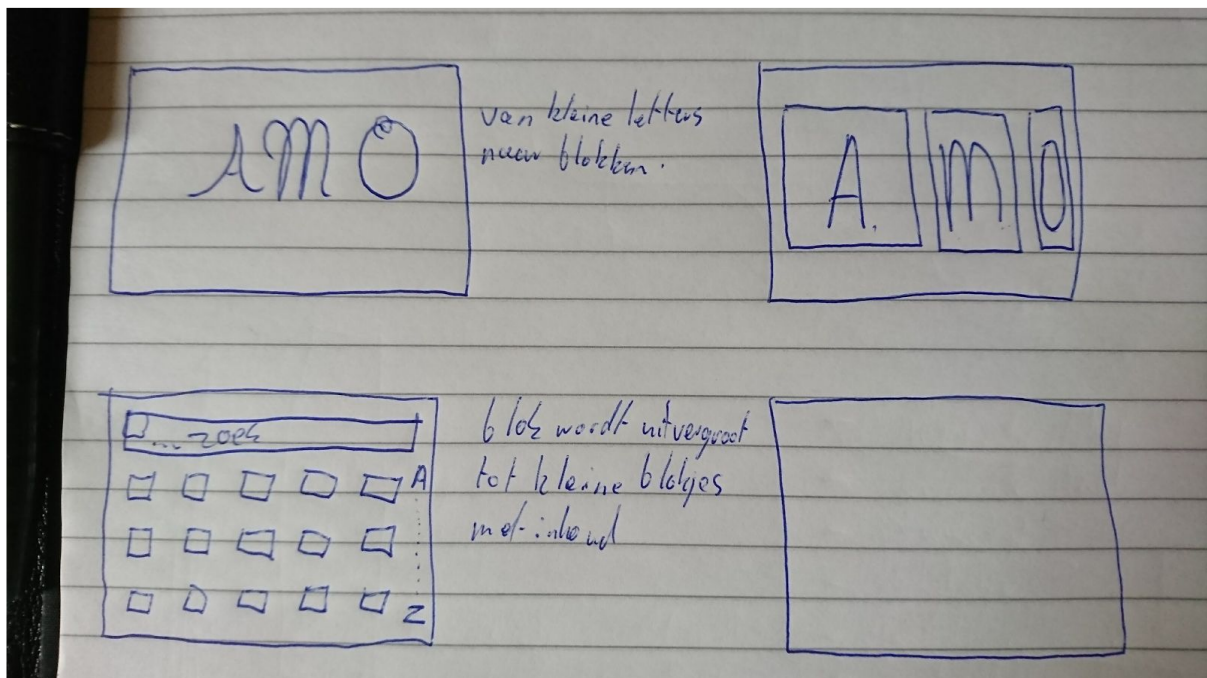 AMO
van kleine letters
naar blokken.
A. M. O
... zoek
A
Z
blok wordt uitvergroot
tot kleine blokjes
met inhoud